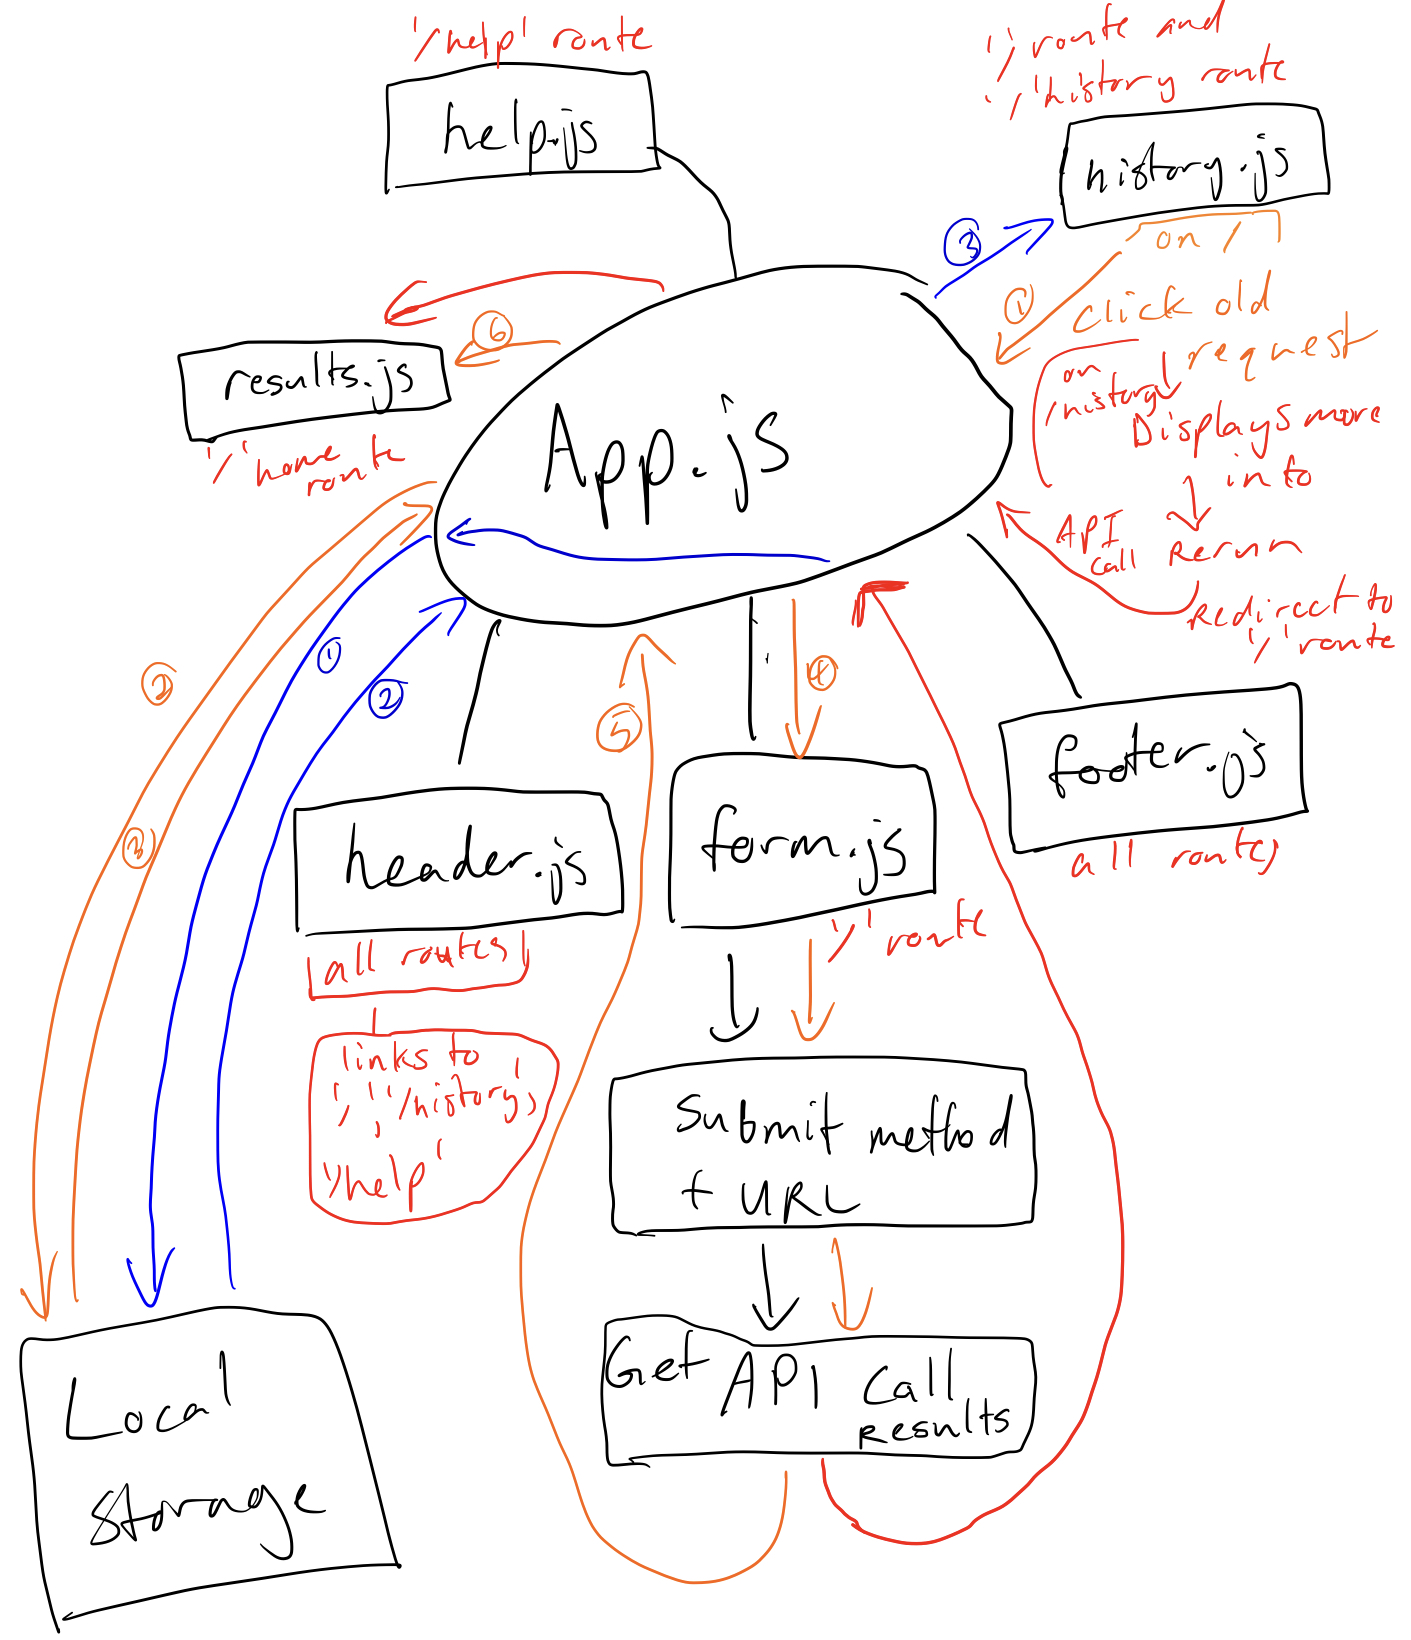 '/help' route
help.js
'/' route and
'/'history route
history.js
③
on /
①
click old
request
on
/history
Displays more
info
API
call
Rerun
Redirect to
'/' route
⑥
results.js
'/' home
route
App.js
①
②
②
③
④
⑤
header.js
all routes
links to
'/', '/history',
'/help'
form.js
'/' route
footer.js
all routes
Submit method
+ URL
Get API call
Results
Local
Storage